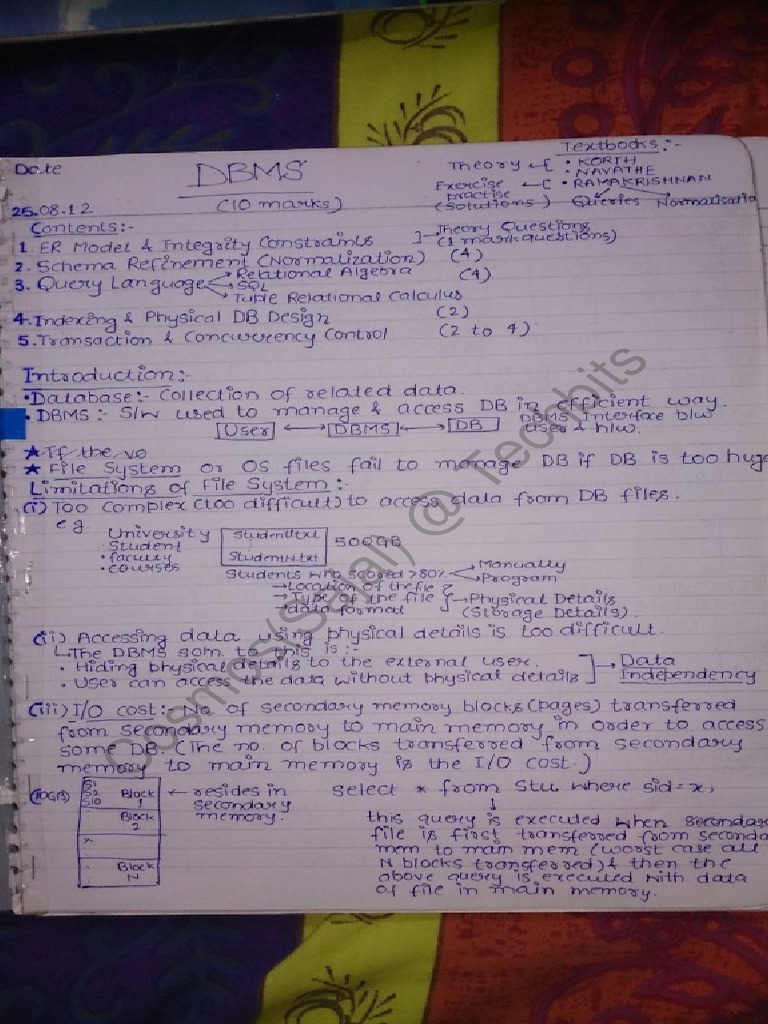 Date
DBMS
(10 marks)
25.08.12
Textbooks:-
Theory
• KORTH
• NAVATHE
Exercise
Practise
(Solutions)
• RAMAKRISHNAN
Queries Normalisatio
Contents:-
1. ER Model & Integrity Constraints ] → Theory Questions
(1 mark questions)
2. Schema Refinement (Normalization) (4)
3. Query Language → Relational Algebra (4)
→ SQL
→ Tuple Relational Calculus
4. Indexing & Physical DB Design (2)
5. Transaction & Concurrency Control (2 to 4)
Introduction:-
• Database:- Collection of related data.
• DBMS:- S/W used to manage & access DB in efficient way.
User ↔ DBMS ↔ DB
DBMS Interface b/w
user & h/w.
★ If the vo
★ File System or OS files fail to manage DB if DB is too huge
Limitations of File System:-
(i) Too complex (too difficult) to access data from DB files.
eg University
• Student
• faculty
• courses
Student1.txt
StudentN.txt
500GB
Students who scored >80% → Manually
→ Program
→ Location of the file
→ Type of the file
→ data format
→ Physical Details
(Storage Details).
(ii) Accessing data using physical details is too difficult.
The DBMS som. to this is:-
• Hiding physical details to the external user.
• User can access the data without physical details
→ Data
Independency
(iii) I/O cost:- No. of secondary memory blocks (pages) transferred
from secondary memory to main memory in order to access
some DB. (The no. of blocks transferred from secondary
memory to main memory is the I/O cost.)
(10GB)
S1
S2
S10
Block
1
Block
2
x
Block
N
← resides in
secondary
memory.
select * from Stu where sid=x,
↓
this query is executed when secondar
file is first transferred from seconda
mem to main mem (worst case all
N blocks transferred) & then the
above query is executed with data
of file in main memory.
Cosmos(Sajal) @ Techbits